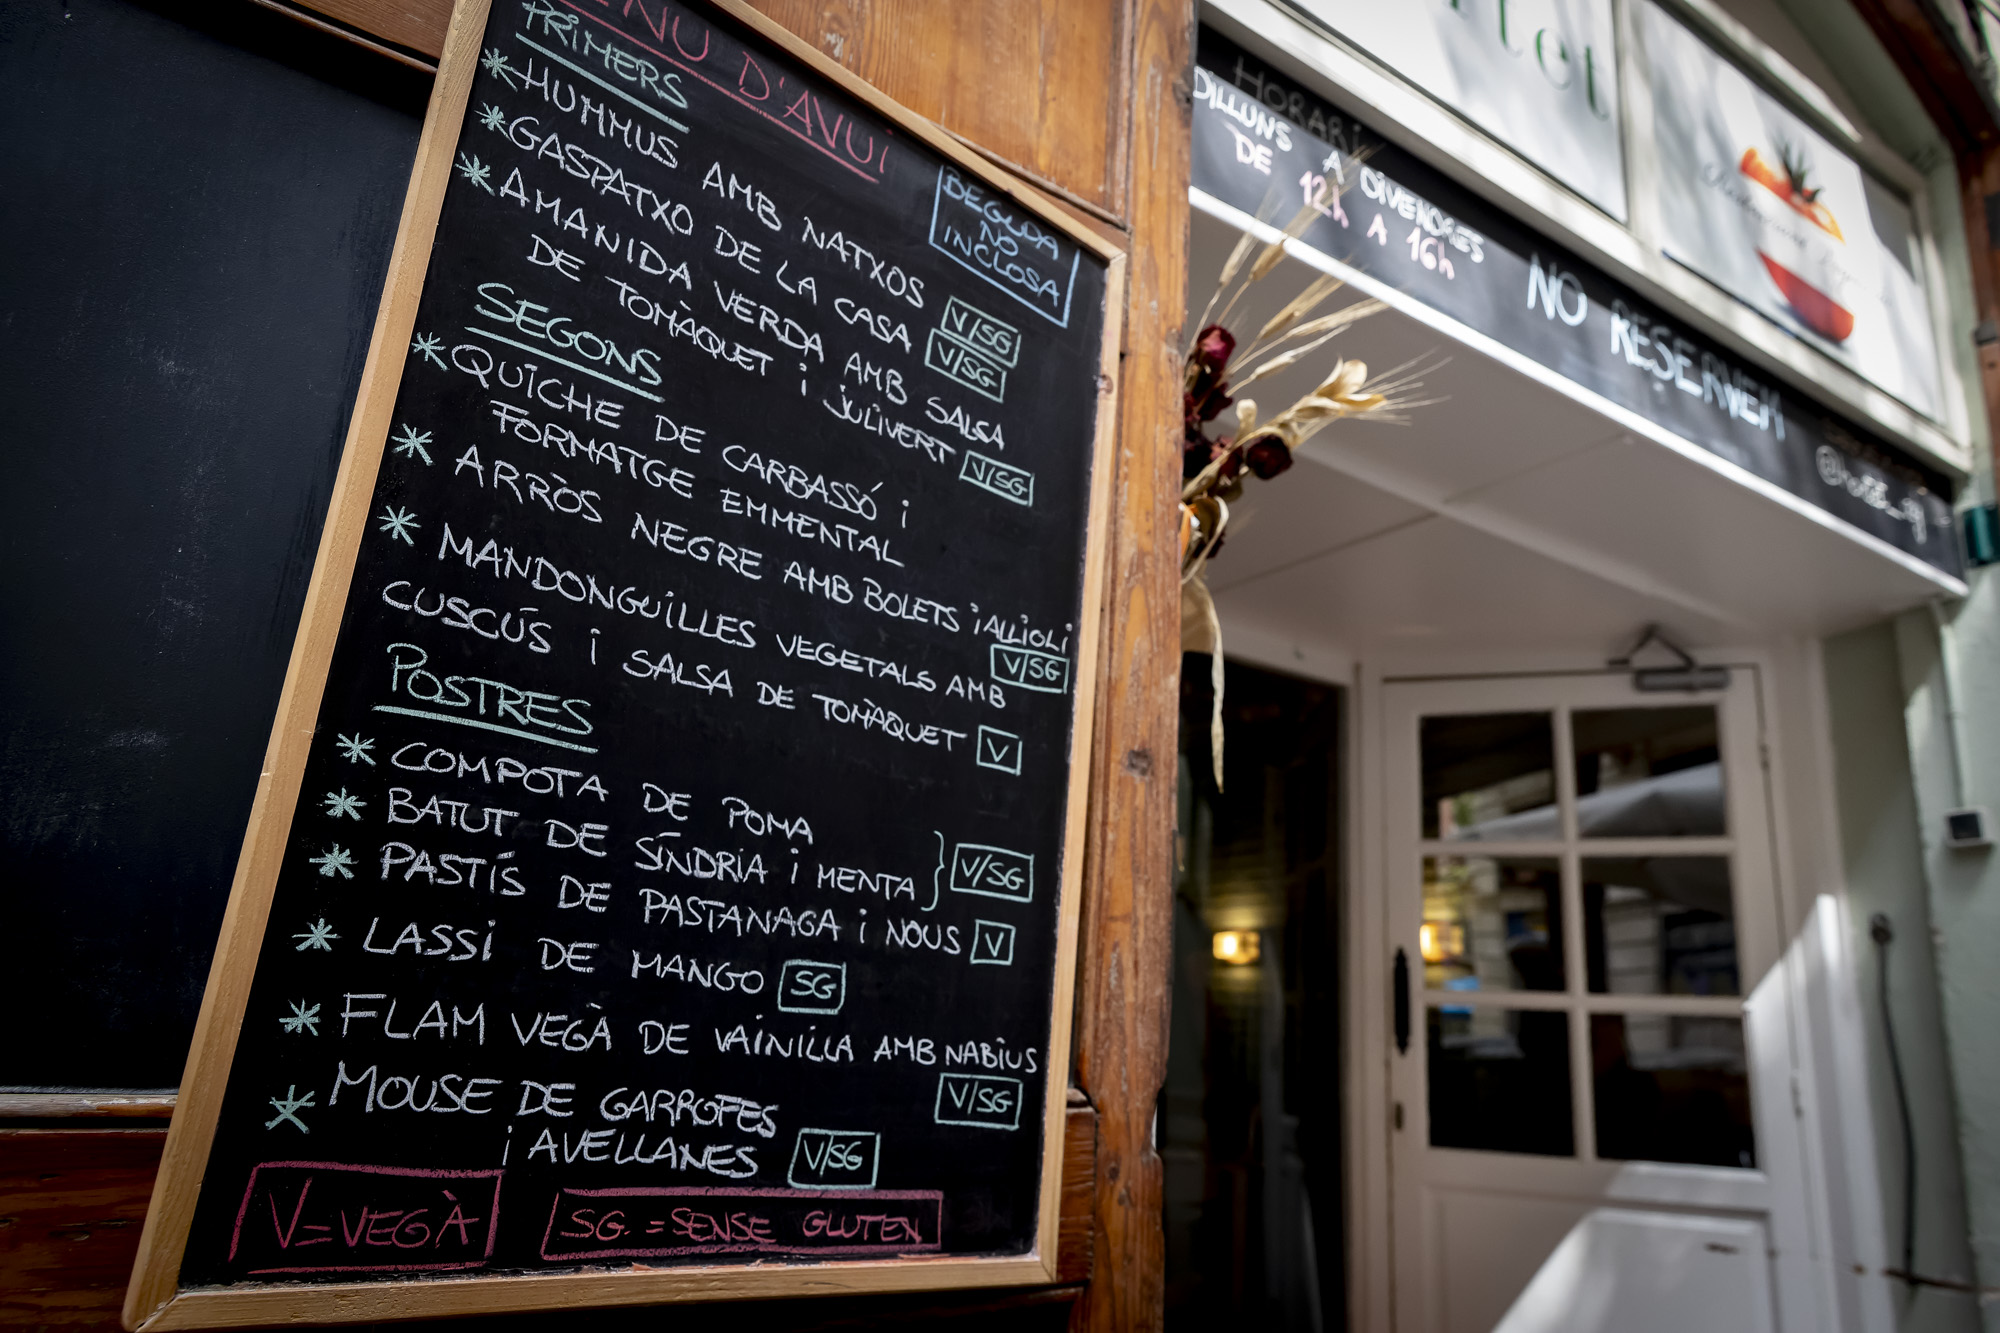 MENU D'AVUi
PRiMERS
BEGUDA
NO
INCLOSA
* HUMMUS AMB NATXOS V/SG
* GASPATXO DE LA CASA V/SG
* AMANIDA VERDA AMB SALSA
DE TOMÀQUET i JULiVERT V/SG
SEGONS
* QUiCHE DE CARBASSÓ i
FORMATGE EMMENTAL
* ARRÒS NEGRE AMB BOLETS i ALLiOLi
V/SG
* MANDONGUiLLES VEGETALS AMB
CUSCÚS i SALSA DE TOMÀQUET V
POSTRES
* COMPOTA DE POMA
* BATUT DE SÍNDRIA i MENTA } V/SG
* PASTÍS DE PASTANAGA i NOUS V
* LASSi DE MANGO SG
* FLAM VEGÀ DE VAiNiLLA AMB NABiUS
V/SG
* MOUSE DE GARROFES
i AVELLANES V/SG
V=VEGÀ
SG.=SENSE GLUTEN
HORARi
DiLLUNS A DiVENDRES
DE 12h A 16h
NO RESERVEM